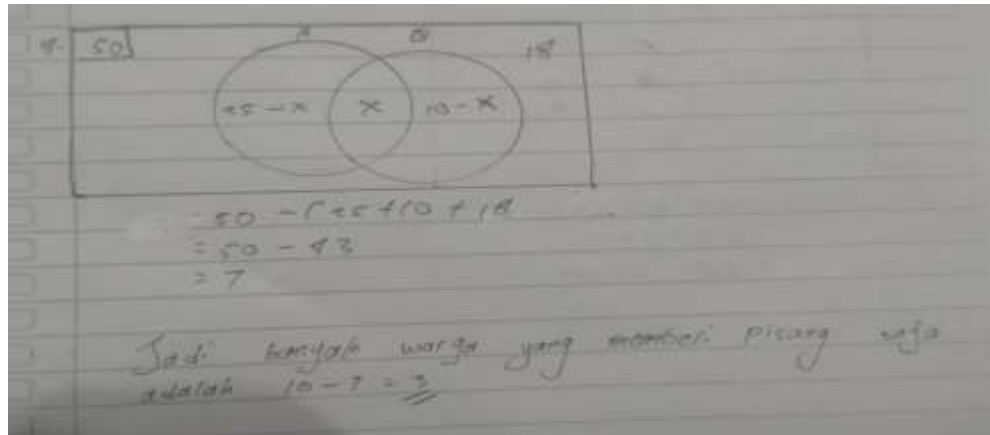 4. 50 A B 18
25-x x 10-x
50 - (25+10+18
= 50 - 43
= 7
Jadi banyak warga yang membeli pisang saja
adalah 10-7 = 3